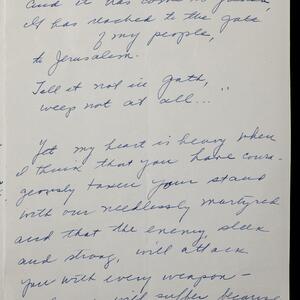 and it has come
It has reached to the gate
of my people,
to Jerusalem.
Tell it not in Gath,
weep not at all... "
Yet my heart is heavy when
I think that you have coura-
geously taken your stand
with our needlessly martyred
and that the enemy, sleek
and strong, will attack
you with every weapon -
will suffer because